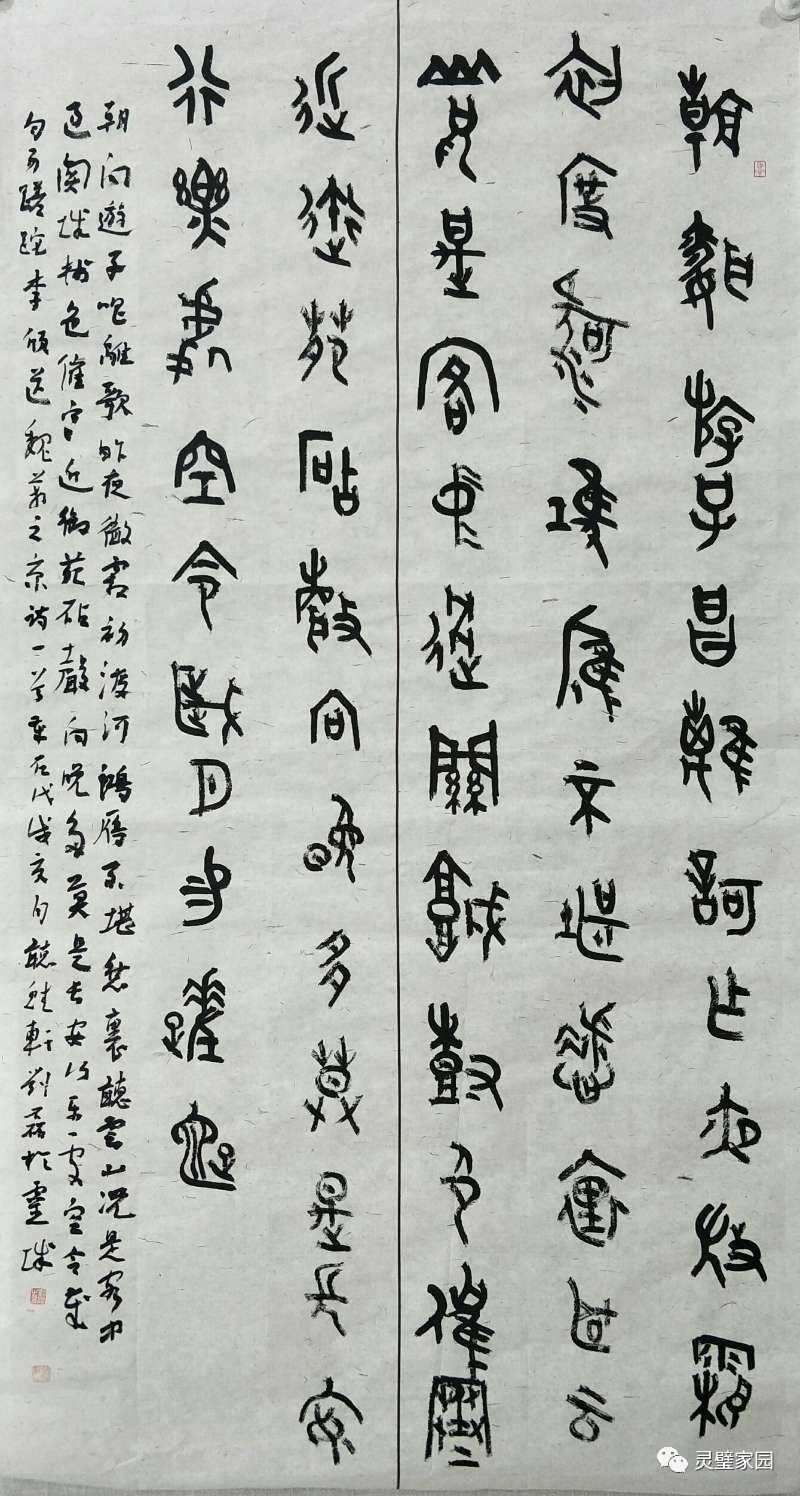 朝聞游子昌離訶乍夜微霜
初度河鴻雁不堪愁裏聽云
山況是客中過關城樹色催寒
近御苑砧聲向晚多莫是長安
行樂處空令歲月易蹉跎
朝聞遊子唱離歌昨夜微霜初渡河鴻雁不堪愁裏聽雲山況是客中
過關城樹色催寒近御苑砧聲向晚多莫是長安行樂處空令歲
月易蹉跎李頎送魏萬之京詩一首戊戌亥月聽軒劉磊於靈城
灵璧家园